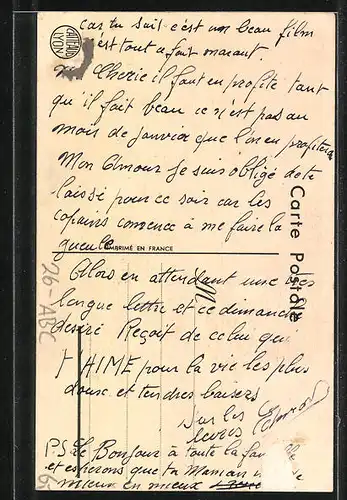 car tu sait c'est un beau film
c'est tout a fait marant.
Cherie il faut en profité tant
qu'il fait beau ce n'est pas au
mois de janvier que l'on en profitera
Mon Amour Je suis obligé de te
laissé pour ce soir car les
copains comence à me faire la
gueule
IMPRIMÉ EN FRANCE
Carte Postale
CAP
LYON
Alors en attendant une très
longue lettre et ce dimanche
desiré Reçoit de celui qui
T'AIME pour la vie les plus
doux et tendres baisers
Sur les
levres
P.S. Le Bonjour à toute la
et esperons que ta Maman
mieux en mieux
26-ABC